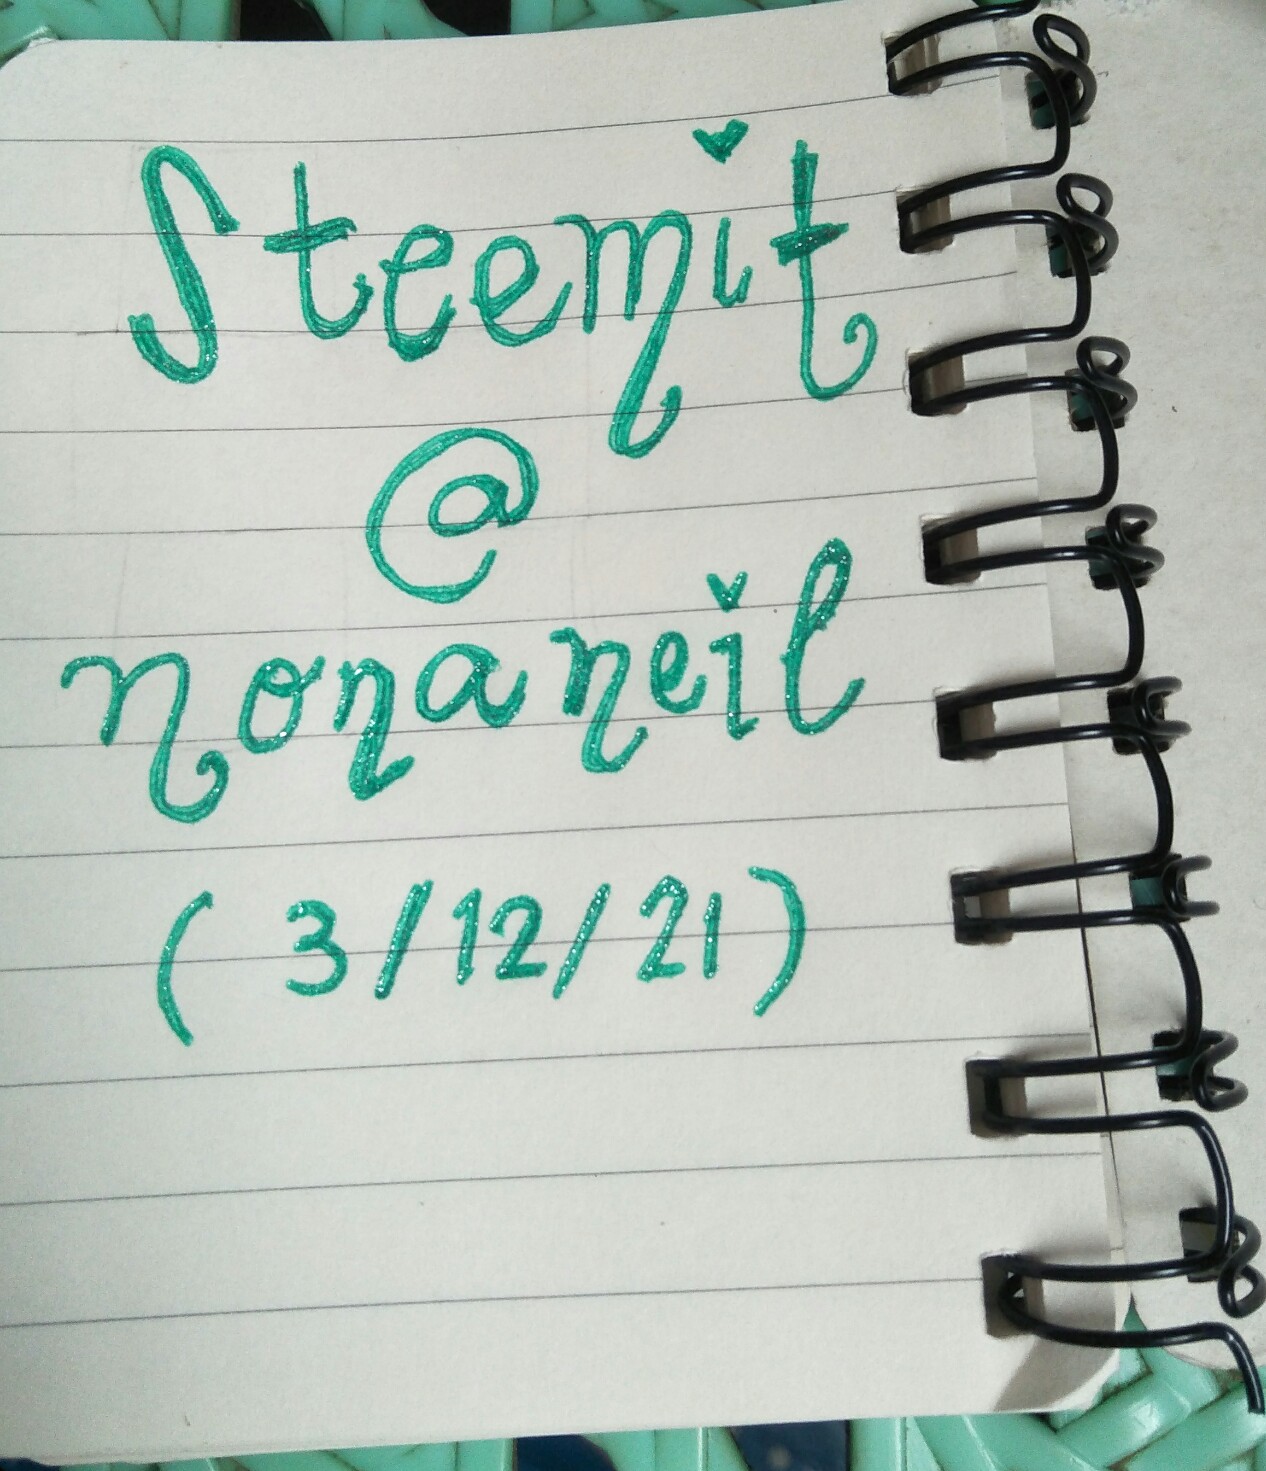 Steemit
@
nonaneil
( 3/12/21)